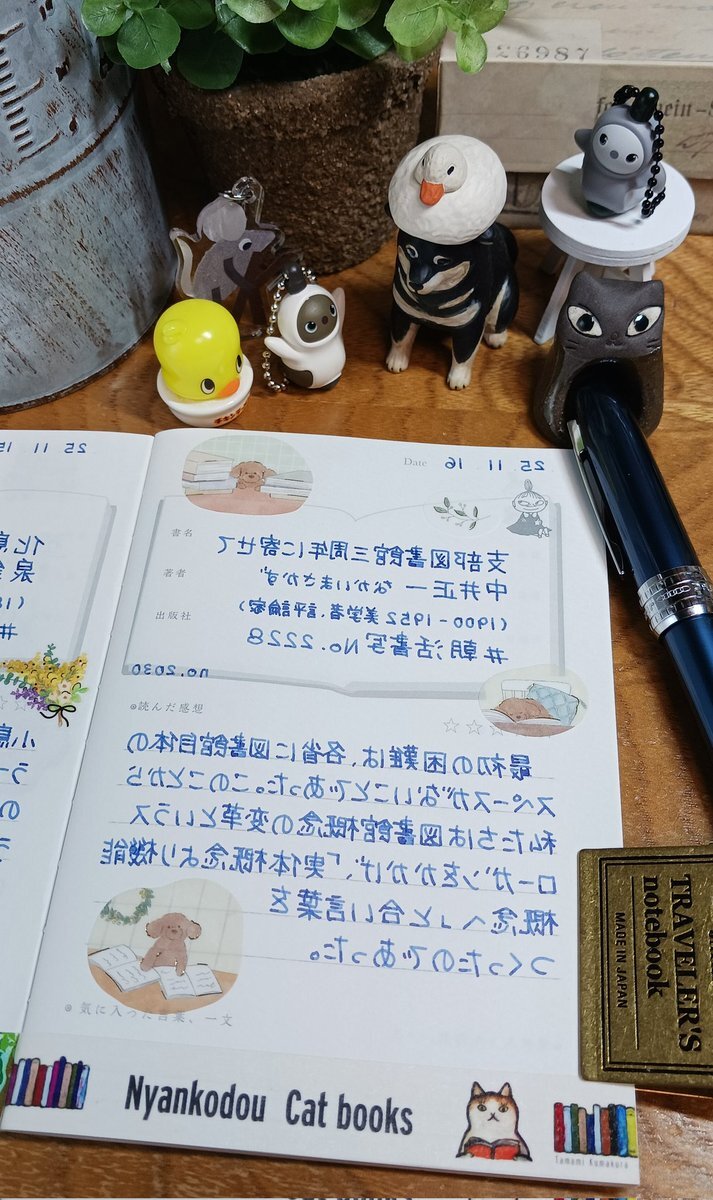 26987
25 11 15
Date 25 11 16
書名
支部図書館三周年に寄せて
著者
中井正一 なかいまさかず
出版社
(1900-1952 美学者、評論家)
#朝活書写 No.2228
no.2030
読んだ感想
最初の困難は、各省に図書館自体の
スペースがないことであった。このことから
私たちは図書館概念の変革というス
ローガンをかかげ、「実体概念より機能
概念へ」と合い言葉を
つくったのであった。
気に入った言葉、一文
Nyankodou Cat books
Tamami Kumakura
TRAVELER'S
notebook
MADE IN JAPAN